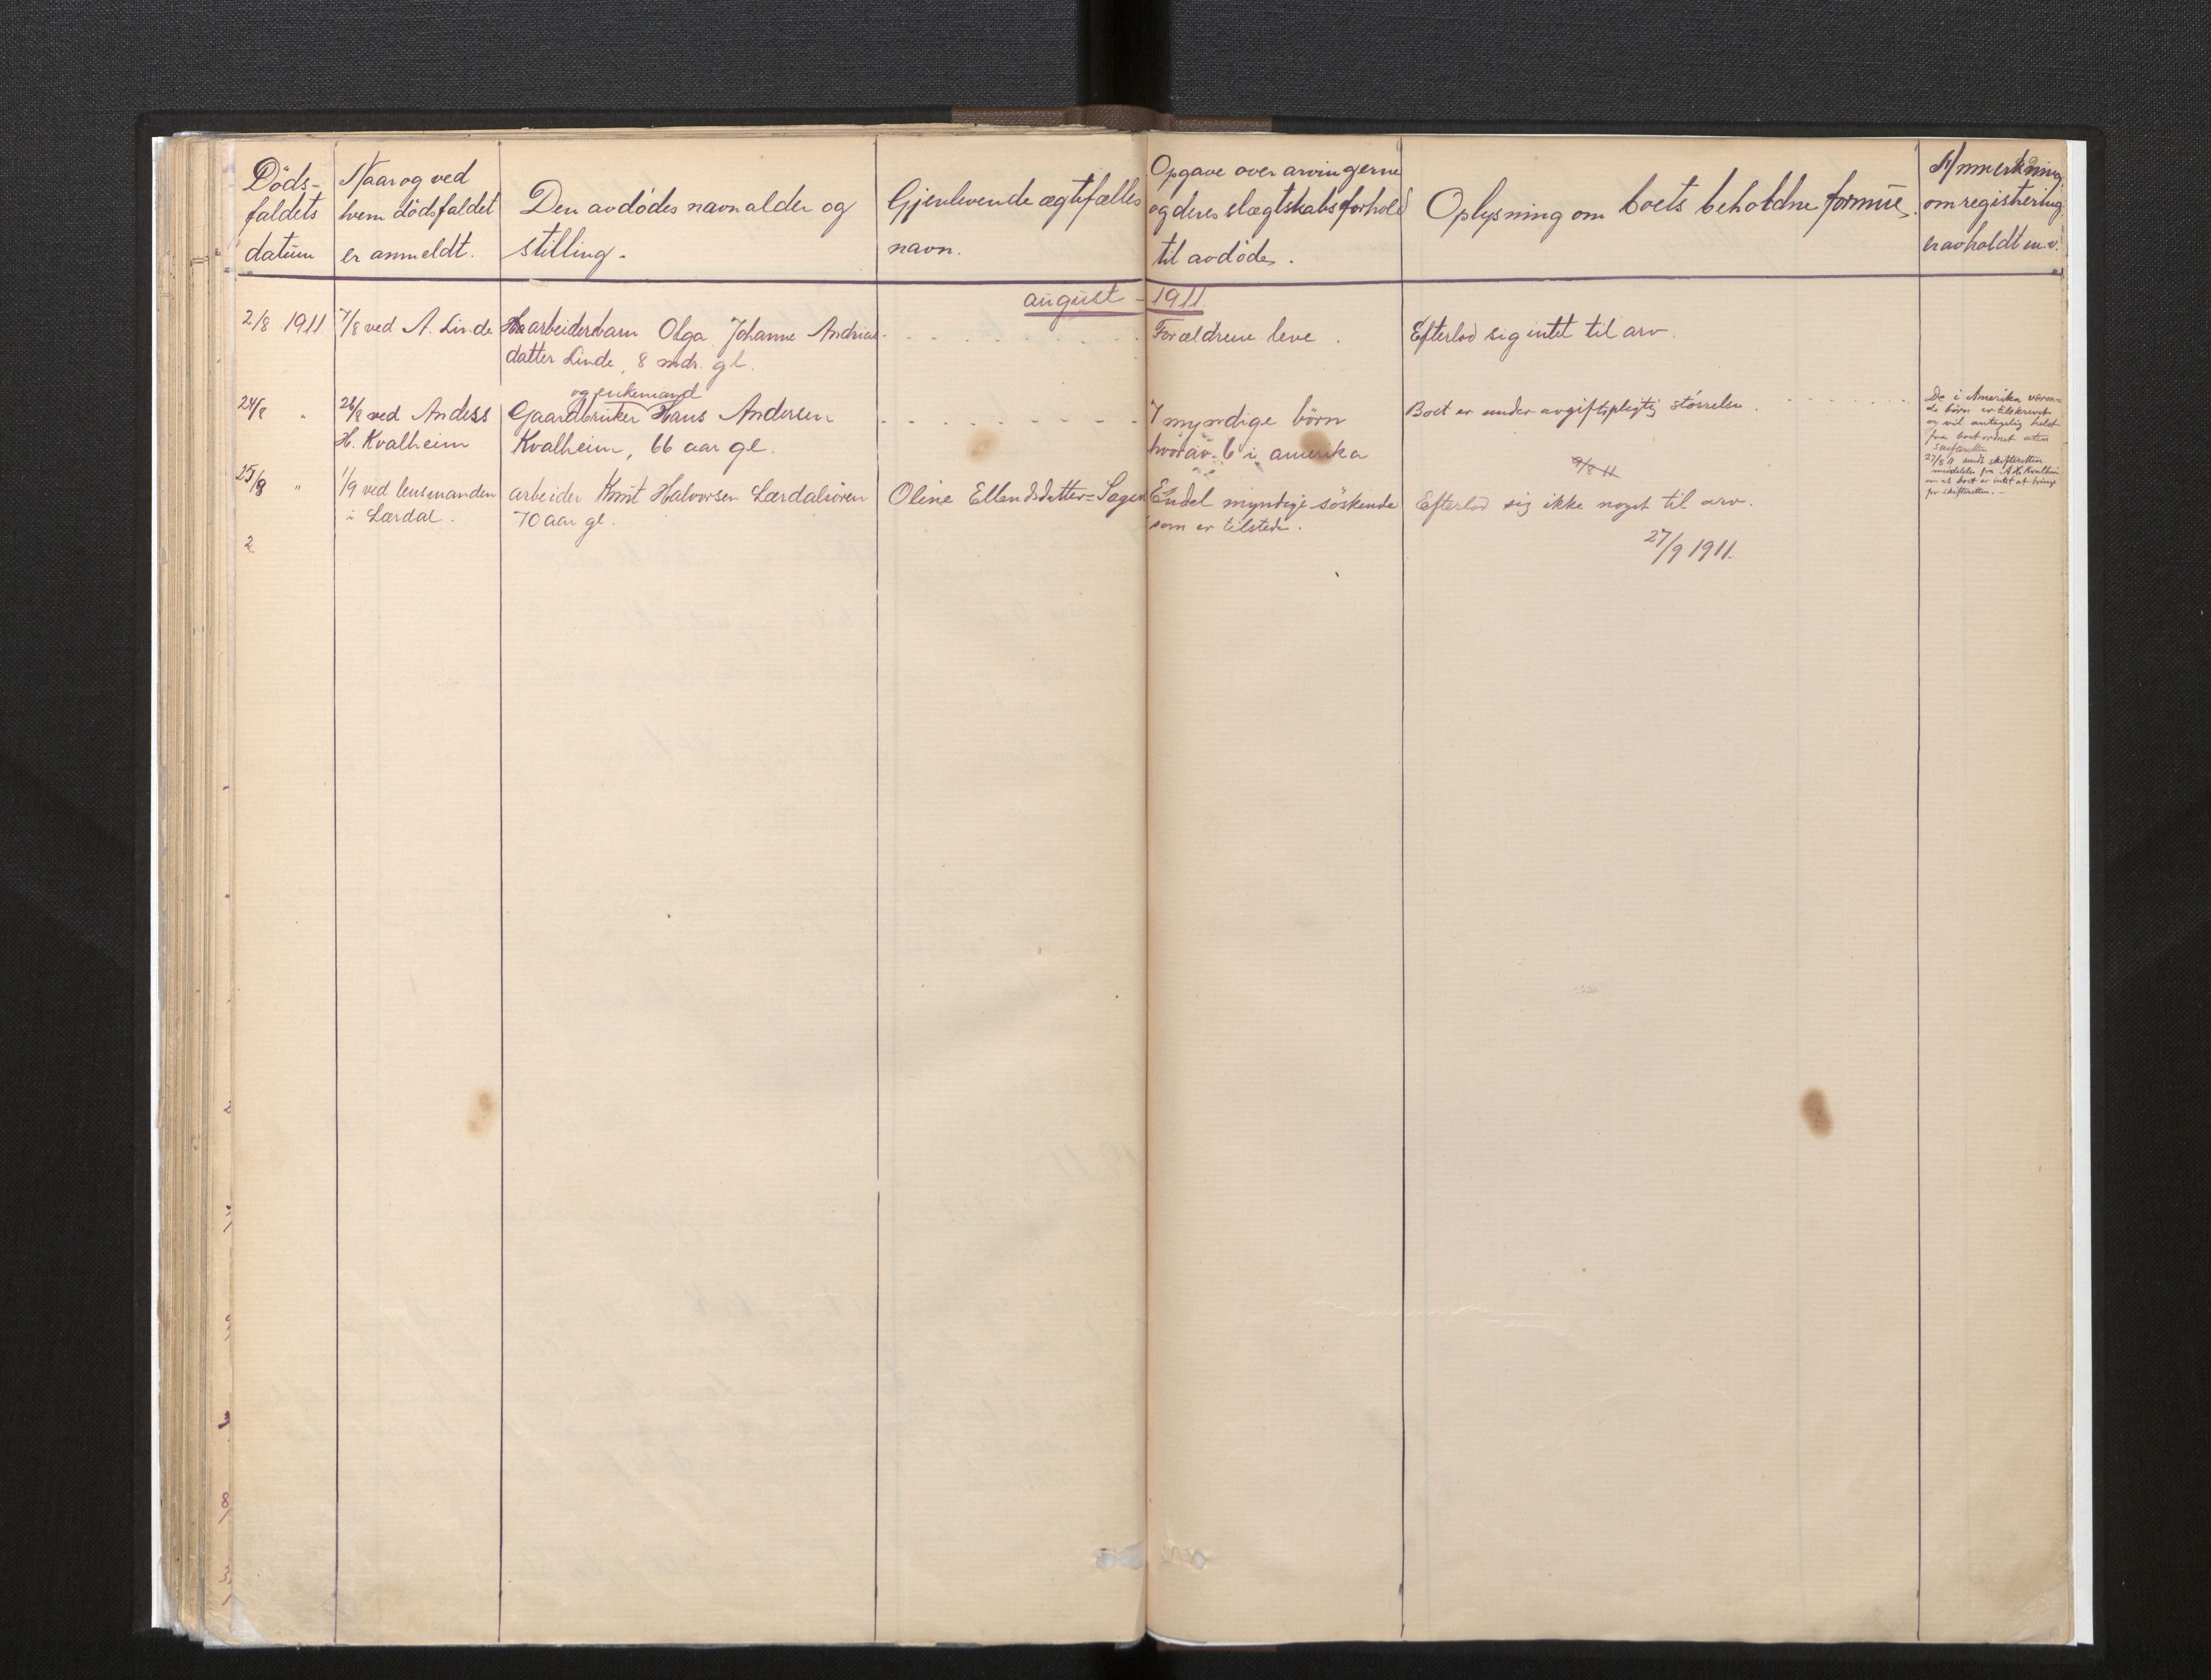 Döds-
faldets
datum
Naar og ved
hvem dödsfaldet
er anmeldt.
Den avdödes navn alder og
stilling.
Gjenlevende ægtefælles
navn.
Opgave over arvingerne
og deres slægtskabsforhold
til avdöde.
Oplysning om boets beholdne formue.
Anmerkning
om registrering
er avholdt m.v.
august - 1911.
2/8 1911
7/8 ved A. Linde
arbeidersbarn Olga Johanne Andrias-
datter Linde, 8 mdr. gl.
Forældrene leve.
Efterlod sig intet til arv.
24/8 "
26/8 ved Anders
H. Kvalheim
og enkemand
Gaardbruker Hans Andersen
Kvalheim, 66 aar gl.
7 myndige börn
hvorav 6 i amerika
Boet er under avgiftspligtig störrelse.
9/8 11
De i Amerika væren-
de börn er tilskrevet
og vil antagelig helst
faa boet ordnet uten
skifteretten
27/8 11 sendt skifteretten
meddelelse fra A. H. Kvalheim
om at boet er intet at bringe
for skifteretten. -
25/8 "
1/9 ved lensmanden
i Lærdal.
arbeider Knut Halvorsen Lærdalsören
70 aar gl.
Oline Ellendsdatter = Sagen
Endel myndige söskende
som er tilstede.
Efterlod sig ikke noget til arv.
27/9 1911.
2